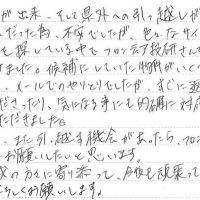 が出来、そして県外への引っ越しが
だった為、不安でしたが、色々なサイ
を探している中でフロンティア技研さんで
けました。候補にしていた物件がいく
、メールでのやりとりでしたが、すぐに返
ださったり、気になる事にも的確に対応
ただきました。
、また引っ越す機会があったら、フロン
お願いしたいと思います。
家の方々に寄り添って、今後も頑張って
ろしくお願いします。